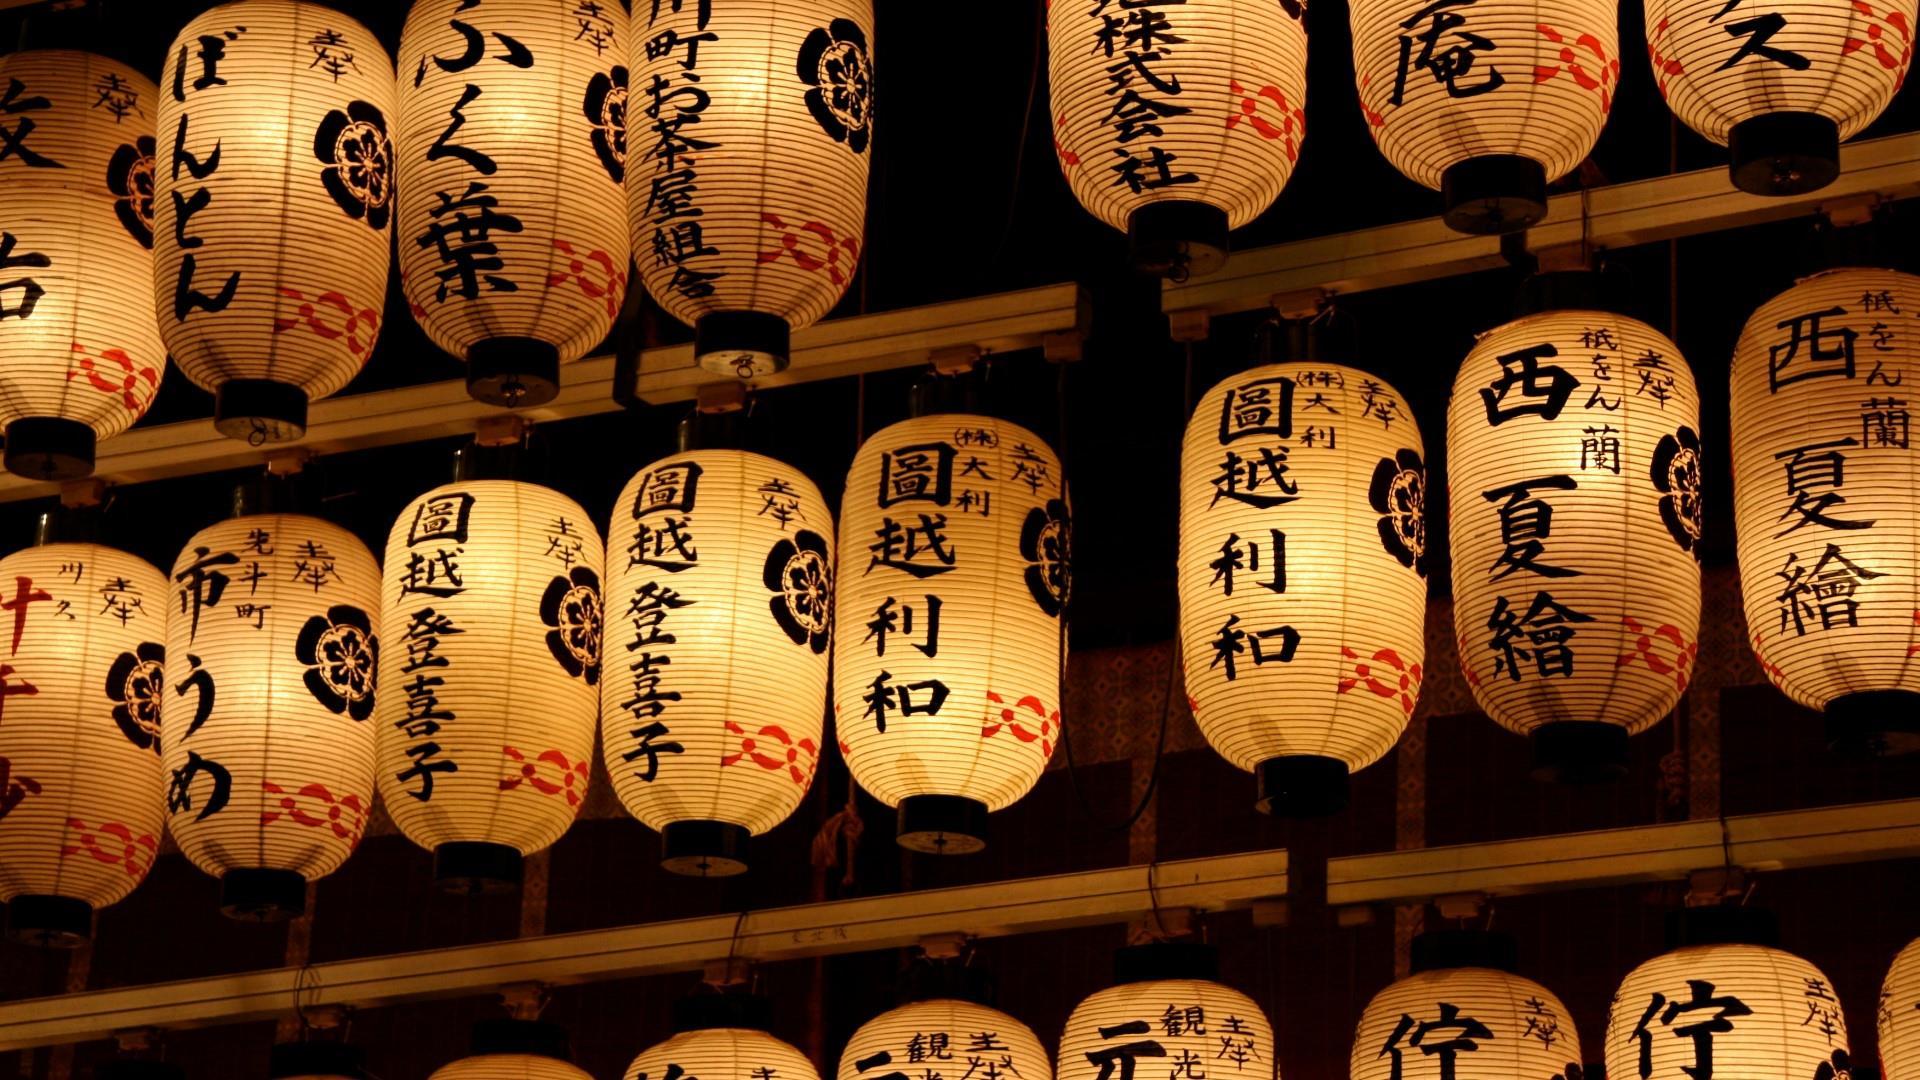 奉
ぼんとん
奉
ふく葉
奉
町お茶屋組合
株式会社
庵
ス
奉
奉
先斗町
市うめ
奉
圖越
登喜子
奉
圖越
登喜子
奉
㈱大利
圖越
利和
奉
㈱大利
圖越
利和
奉
祇をん
蘭
西夏繪
祇をん
蘭
西夏繪
奉
観光
奉
観光
元
奉
佇
奉
佇